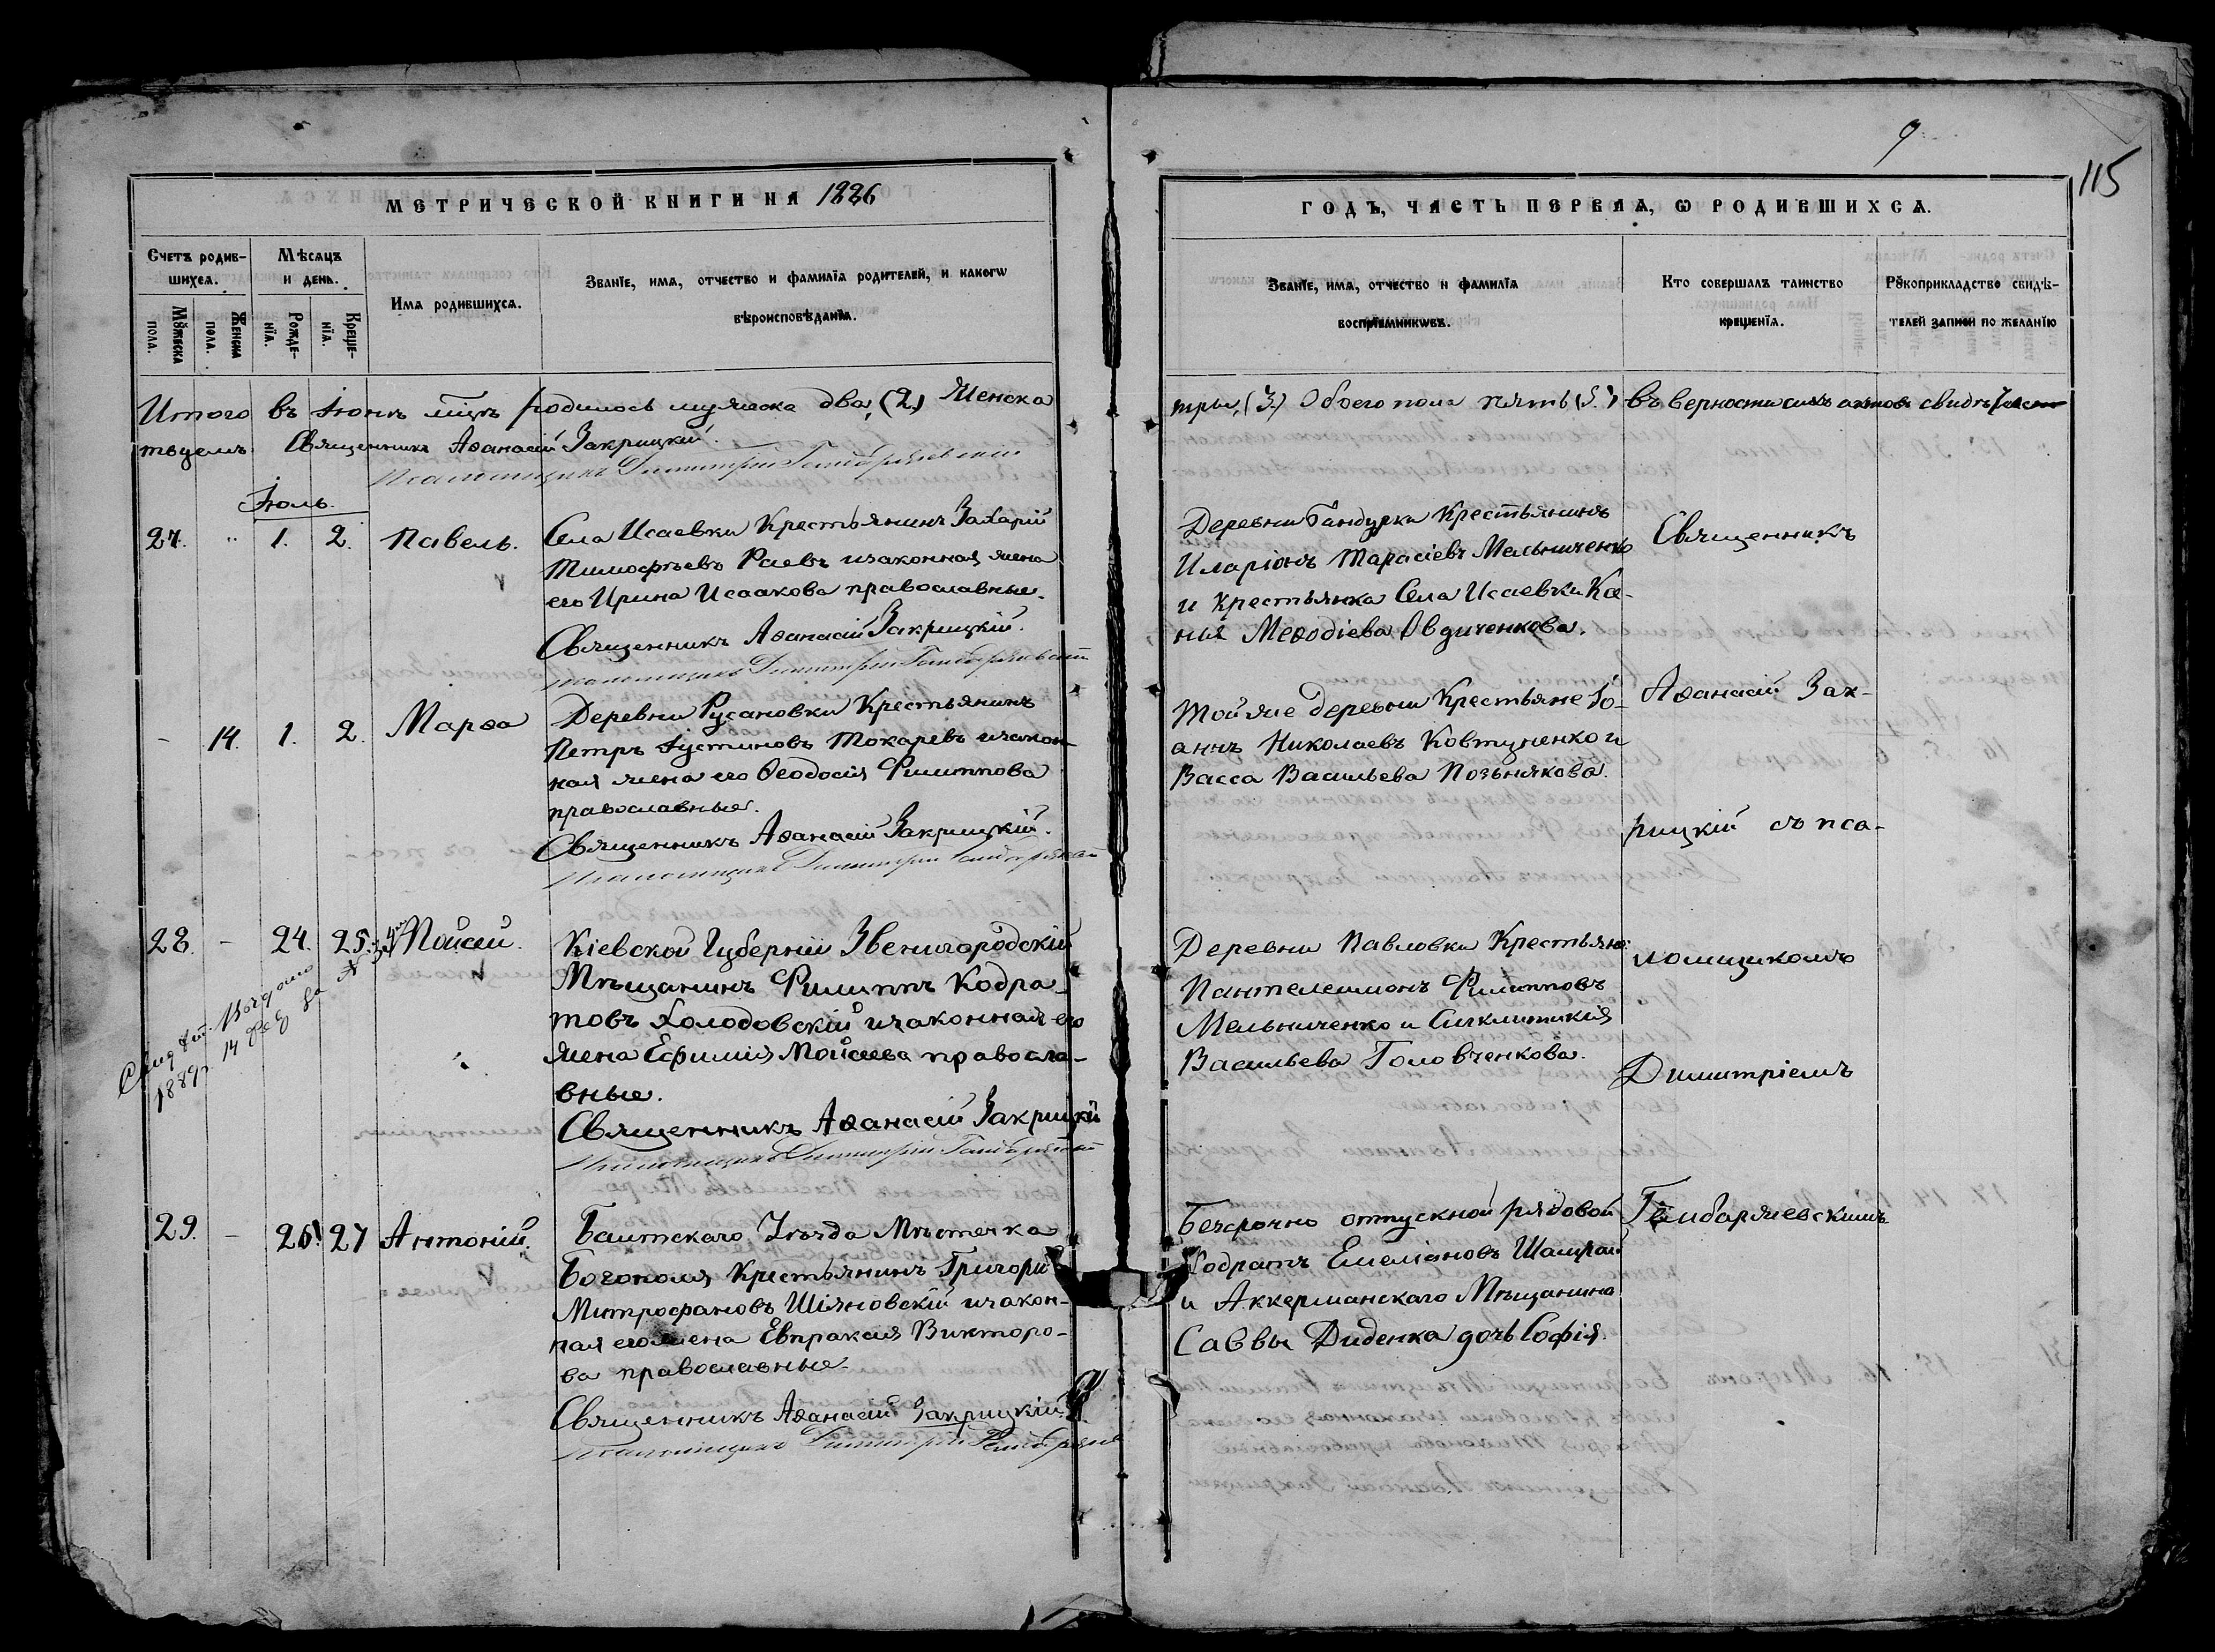 9
115
МЕТРИЧЕСКОЙ КНИГИ НА 1886
ГОДЪ, ЧАСТЬ ПЕРВАЯ, Ѡ РОДИВШИХСЯ.
Счетъ родив-
шихся.
Мѣсяцъ
и день.
Мужеска
пола.
Женска
пола.
Рожде-
нїя.
Креще-
нїя.
Имя родившихся.
Званїе, имя, отчество и фамилїя родителей, и какогѡ
вѣроисповѣданїя.
Званїе, имя, отчество и фамилїя
воспрїемникѡвъ.
Кто совершалъ таинство
крещенїя.
Рꙋкоприкладство свидѣ-
телей записи по желанїю
Итого въ Іюнѣ мцѣ родилось мужеска два, (2) Женска
три, (3.) Обоего пола пять (5.) въ верности сихъ актовъ свидѣтель-
твуемъ Священникъ Аѳанасій Закрицкій.
Псаломщикъ Димитрій
Іюль.
27. " 1. 2. Павелъ.
Села Исаевки Крестьянинъ Захарій
Тимофѣевъ Раевъ изаконная жена
его Ирина Исаакова православные.
Священникъ Аѳанасій Закрицкій.
Псаломщикъ Димитрій
Деревни Гандурки Крестьянинъ
Иларіонъ Тарасіевъ Мельниченко
и Крестьянка Села Исаевки Ксе-
нія Меѳодіева Овдиченкова.
Священникъ
- 14. 1. 2. Марѳа
Деревни Русановки Крестьянинъ
Петръ Іустиновъ Токаревъ изакон-
ная жена его Ѳеодосія Филиппова
православные.
Священникъ Аѳанасій Закрицкій.
Псаломщикъ Димитрій
Тойже деревни Крестьяне Іо-
аннъ Николаевъ Ковтуненко и
Васса Васильева Позьнякова.
Аѳанасій Зак-
рицкій съ пса-
28. - 24. 25. Мойсей.
Свид. Выдано
1889г. 14 фев за №
Кіевской Губерніи Звенигородскій
Мѣщанинъ Филиппъ Кодра-
товъ Холодовскій изаконная его
жена Ефимія Мойсеева правосла-
вные.
Священникъ Аѳанасій Закрицкій
Псаломщикъ Димитрій
Деревни Павловки Крестьяне:
Пантелеимонъ Филипповъ
Мельниченко и Сигклитикія
Васильева Головченкова.
ломщикомъ
Димитріемъ
29. - 26. 27 Антоній.
Балтскаго Уѣзда Мѣстечка
Богополя Крестьянинъ Григорій
Митрофановъ Шіяновскій изакон-
ная его жена Евпраксія Викторо-
ва православные.
Священникъ Аѳанасій Закрицкій.
Псаломщикъ Димитрій
Безсрочно отпускной рядовой
Кодратъ Емеліановъ Шамрай
и Аккерманскаго Мѣщанина
Саввы Диденка дочь Софія.